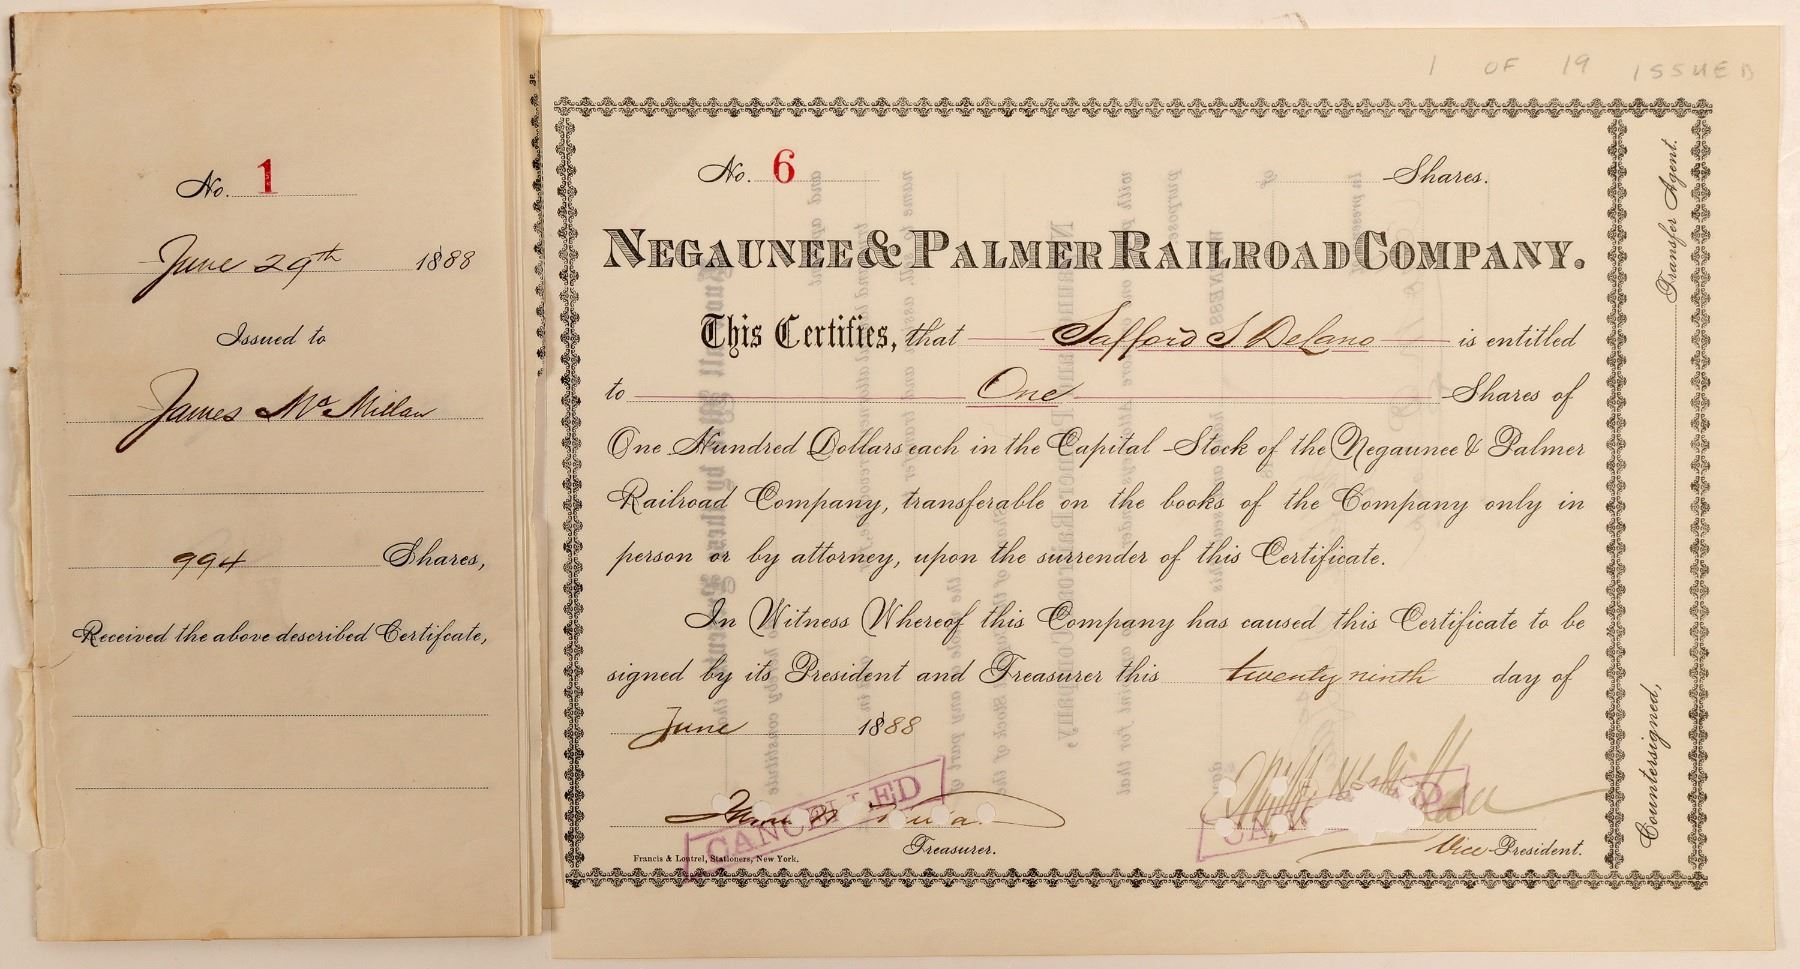 No. 1
June 29th 1888
Issued to
James McMillan
994 Shares,
Received the above described Certifcate,
1 OF 19 ISSUED
No. 6 Shares.
NEGAUNEE & PALMER RAILROAD COMPANY.
This Certifies, that Safford S DeLano is entitled
to One Shares of
One Hundred Dollars each in the Capital Stock of the Negaunee & Palmer
Railroad Company, transferable on the books of the Company only in
person or by attorney, upon the surrender of this Certificate.
In Witness Whereof this Company has caused this Certificate to be
signed by its President and Treasurer this twenty ninth day of
June 1888
CANCELLED
Treasurer.
Vice President.
Francis & Loutrel, Stationers, New York.
Countersigned,
Transfer Agent.